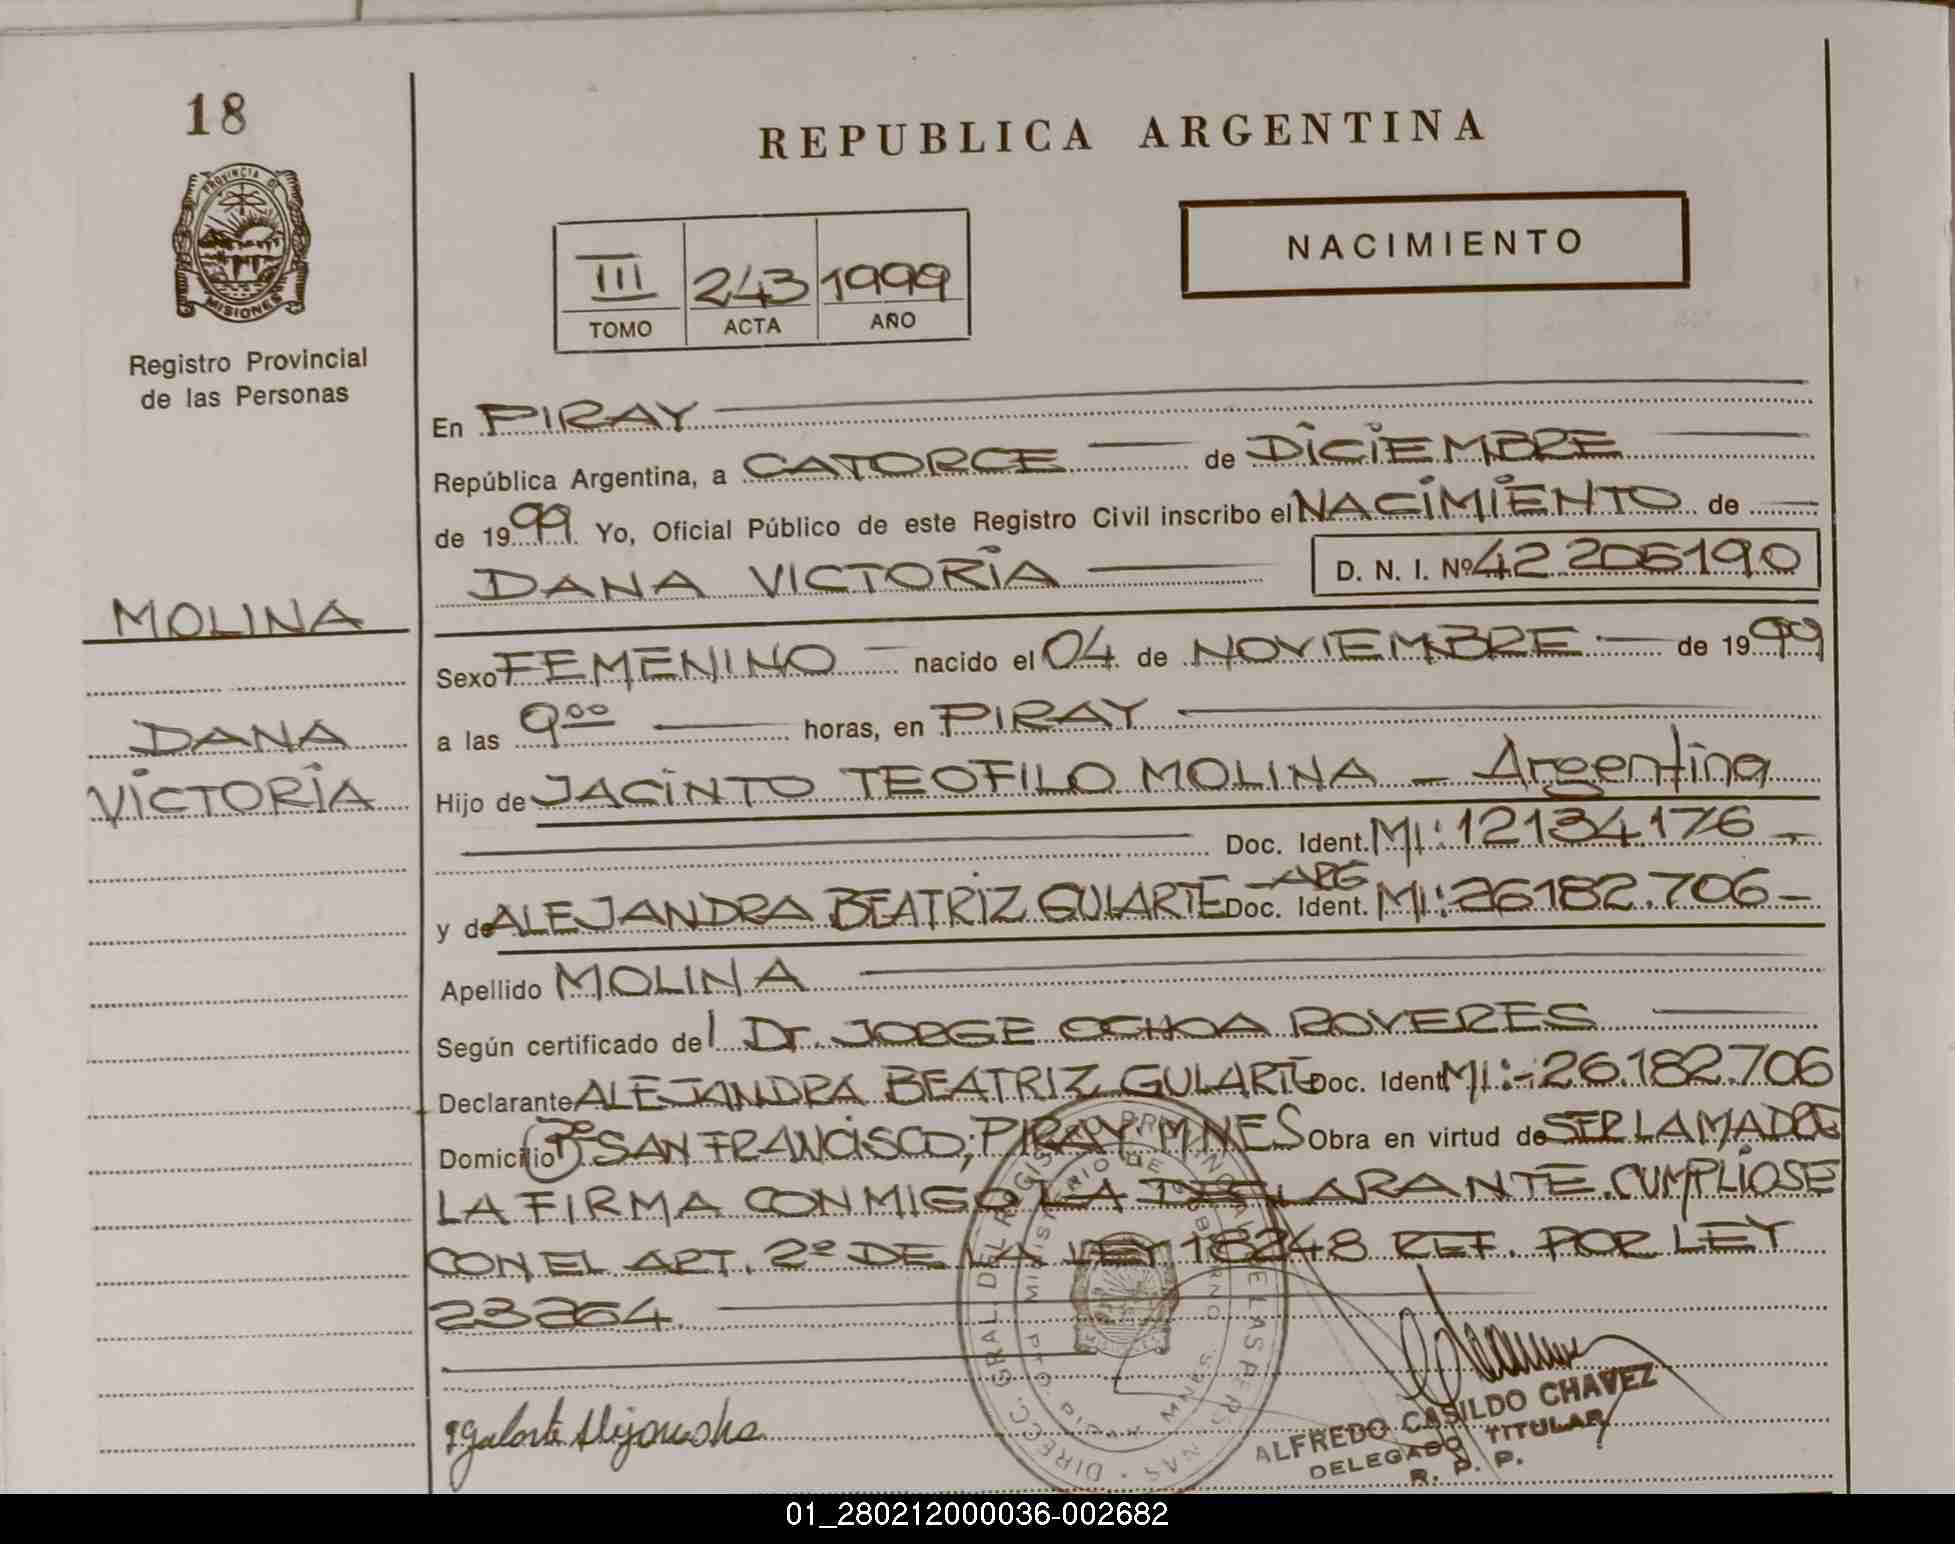 18
PROVINCIA DE
MISIONES
Registro Provincial
de las Personas
REPUBLICA ARGENTINA
NACIMIENTO
III 243 1999
TOMO ACTA AÑO
En PIRAY
República Argentina, a CATORCE de DICIEMBRE
de 1999 Yo, Oficial Público de este Registro Civil inscribo el NACIMIENTO de
DANA VICTORIA D. N. I. Nº 42 206190
MOLINA
DANA
VICTORIA
Sexo FEMENINO nacido el 04 de NOVIEMBRE de 1999
a las 9 00 horas, en PIRAY
Hijo de JACINTO TEOFILO MOLINA - Argentina
Doc. Ident. MI: 12134.176 -
y de ALEJANDRA BEATRIZ GULARTE - ARG Doc. Ident. MI: 26182.706 -
Apellido MOLINA
Según certificado del Dr. JORGE OCHOA ROVERES
Declarante ALEJANDRA BEATRIZ GULARTE Doc. Ident MI:- 26.182.706
Domicilio Bº SAN FRANCISCO; PIRAY MNES Obra en virtud de SER LA MADRE
LA FIRMA CONMIGO LA DECLARANTE. CUMPLIOSE
CON EL ART. 2º DE LA LEY 18248 REF. POR LEY
23264.
DIRECC. GRAL DEL REGISTRO PROVINCIAL DE LAS PERSONAS
MINISTERIO DE GOBIERNO
Gularte Alejandra
ALFREDO CASILDO CHAVEZ
DELEGADO TITULAR
R. P. P.
01_280212000036-002682